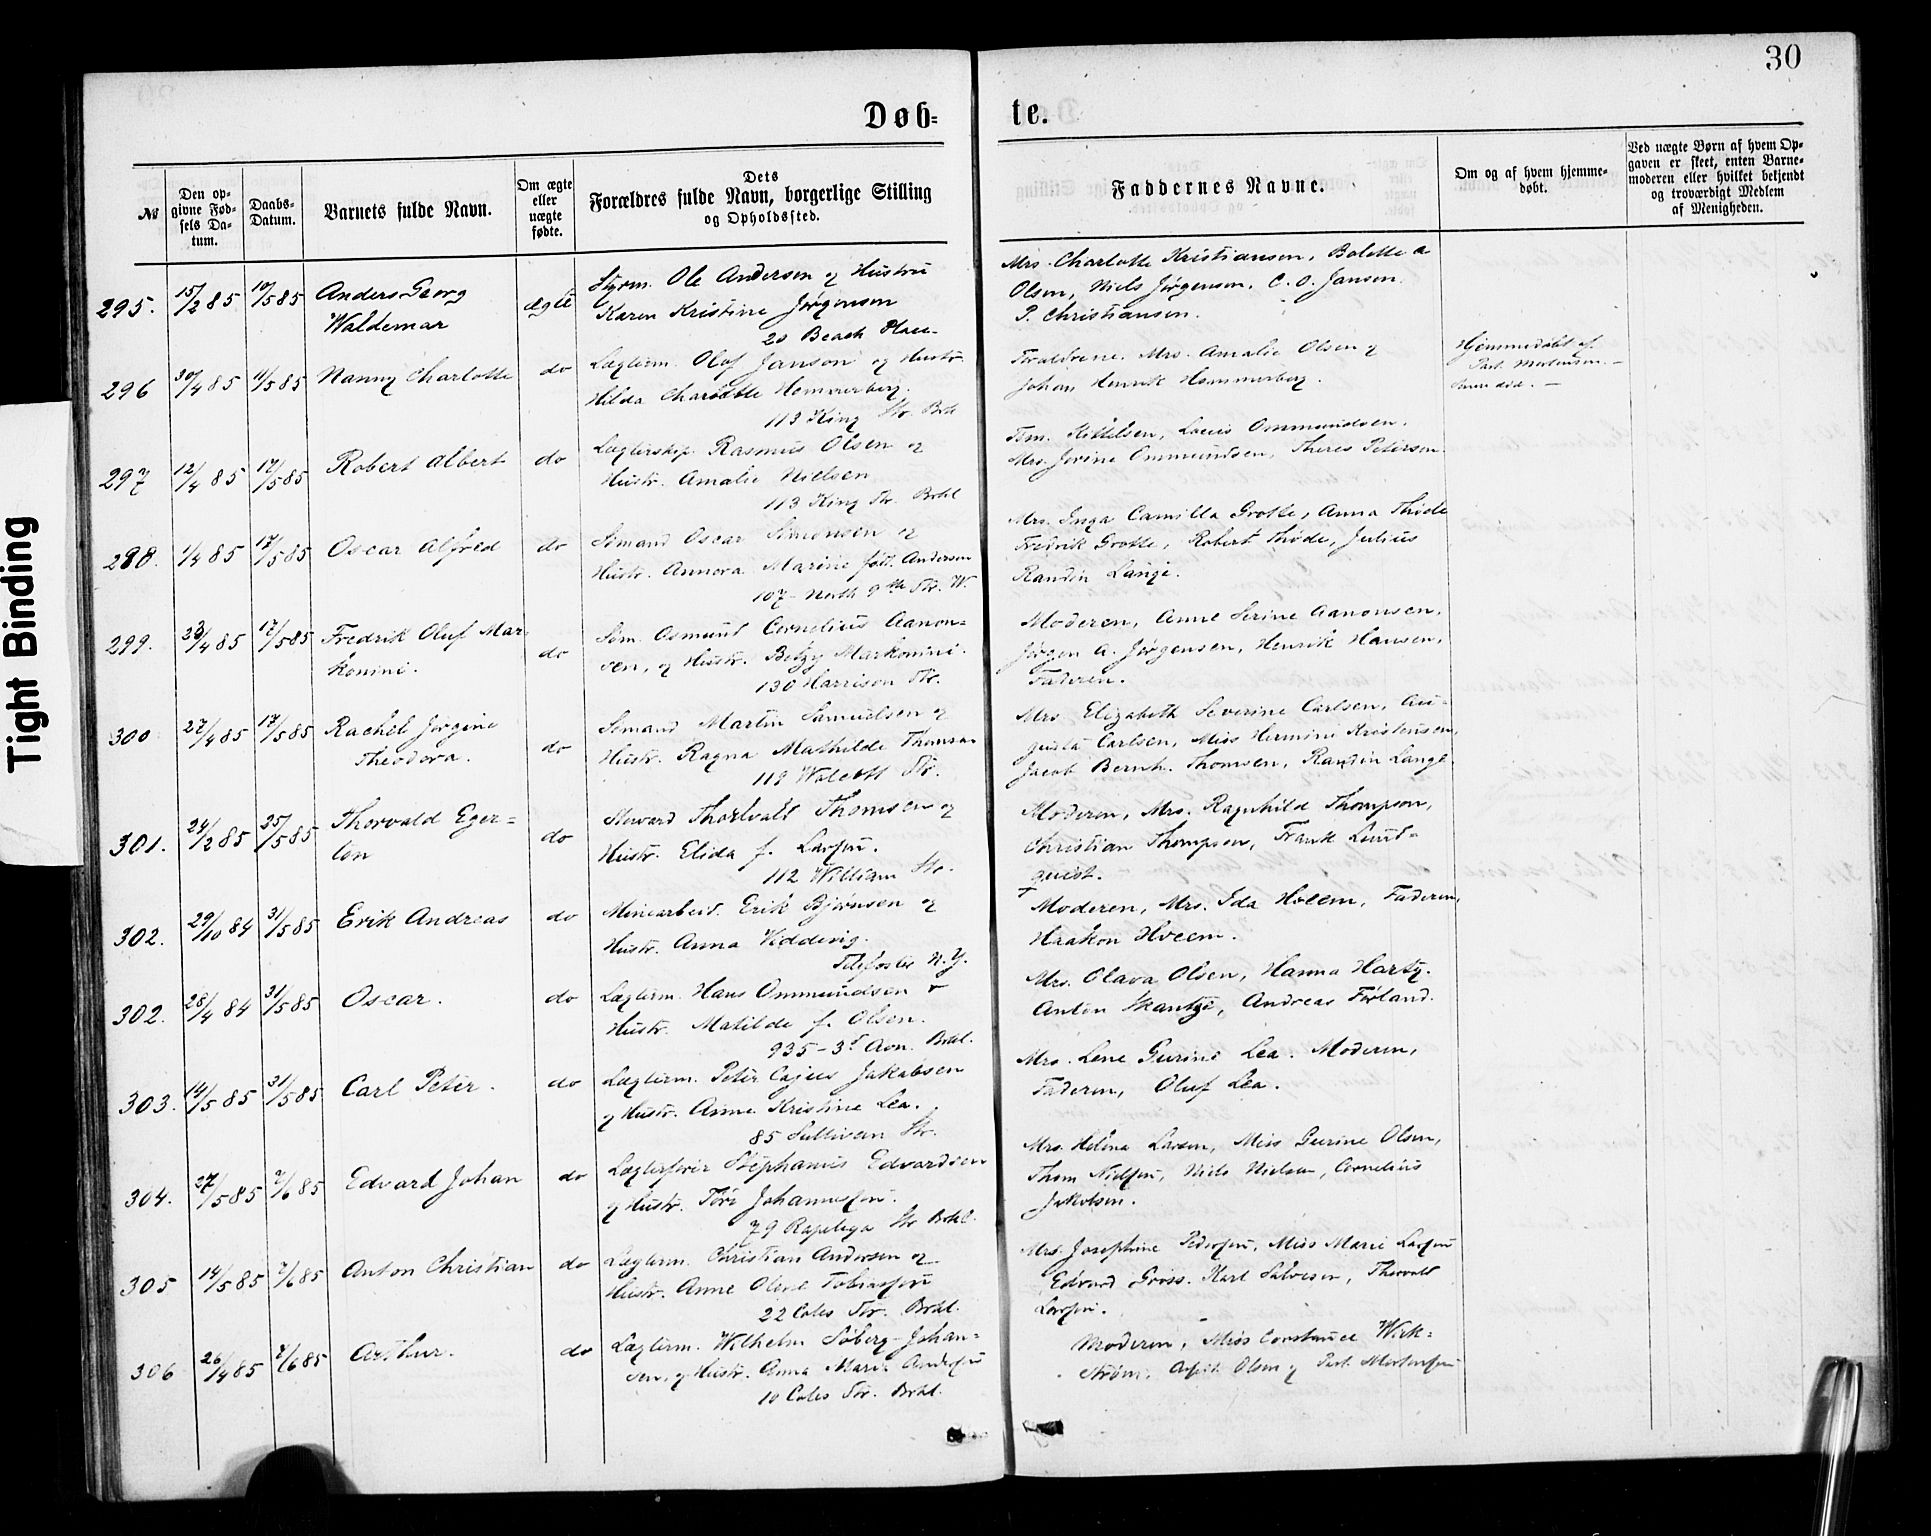 30
Døb-
te.
№
Den op-
givne Fød-
sels Da-
tum.
Daabs-
Datum.
Barnets fulde Navn.
Om ægte
eller
uægte
fødte.
Dets
Forældres fulde Navn, borgerlige Stilling
og Opholdssted.
Faddernes Navne.
Om og af hvem hjemme-
døbt.
Ved uægte Børn af hvem Op-
gaven er skeet, enten Barne-
moderen eller hvilket bekjendt
og troværdigt Medlem
af Menigheden.
295. 15/2 85 10/5 85 Anders Georg
Waldemar
ægte
Styrm. Ole Andersen og Hustru
Karen Kristine Jørgensen
20 Beach Place.
Mrs. Charlotte Kristiansen, Bolette a
Olsen, Niels Jørgensen, C. O. Jansen.
P. Christiansen.
296 30/4 85 11/5 85 Nanny Charlotte do
Lægterm. Olof Janson og Hustr.
Hilda Charlotte Hemmerberg.
113 King Str. Brkl
Forældrene. Mrs. Amalie Olsen og
Johan Henrik Hemmerberg.
Hjemmedøbt af
Past. Mortensen. —
297 12/4 85 17/5 85 Robert Albert do
Lægterskip. Rasmus Olsen og
Hustr. Amalie Nielsen
113 King Str. Brkl
Tom. Kittilsen, Louis Ommundsen.
Mrs. Jorine Ommundsen, Theres Peterson
288. 1/4 85 17/5 85 Oscar Alfred do
Sømand Oscar Simonsen og
Hustr. Annora Marine født Andersen
107 - North 9th Str. W.
Mrs. Inga Camilla Grotle, Anna Thode
Fredrik Grotle, Robert Thode, Julius
Randin Lange.
299. 23/4 85 17/5 85 Fredrik Oluf Mar-
konini.
do
Søm. Osmund Cornelius Aanon-
sen, og Hustr. Betzy Markonini.
130 Harrison Str.
Moderen, Anne Serine Aanonsen,
Jørgen A. Jørgensen, Henrik Hansen,
Faderen.
300 27/4 85 17/5 85 Rachel Jørgine
Theodora.
do
Sømand Martin Samuelsen og
Hustr. Ragna Mathilde Thomsen
119 Walcott Str.
Mrs Elizabeth Severine Carlsen, Au-
gusta Carlsen, Miss Hermine Kristensen,
Jacob Bernh. Thomsen, Randin Lange
301. 24/2 85 25/5 85 Thorvald Eger-
ton
do
Steward Thorlvald Thomsen og
Hustr. Elida f. Larsen.
112 William Str.
Moderen, Mrs. Ragnhild Thompson,
Christian Thompson, Frank Lund-
quist.
302. 29/10 84 31/5 85 Erik Andreas do
Minearbeid. Erik Bjørnsen og
Hustr. Anna Vedderig.
N.Y.
Moderen, Mrs. Ida Hveem, Faderen,
Haakon Hveem.
302. 28/4 84 31/5 85 Oscar. do
Lægterm. Hans Ommundsen
Hustr. Matilde f. Olsen.
935 - 3d Avn. Brkl.
Mrs. Olava Olsen, Hanna Hartz.
Anton Skantze, Andreas Førland.
303. 14/5 85 31/5 85 Carl Peter. do
Lægterm. Peter Cajus Jakobsen
og Hustr. Anne Kristine Lea.
85 Sullivan Str.
Mrs. Lene Gurine Lea. Moderen,
Faderen, Oluf Lea.
304. 27/5 85 7/6 85 Edvard Johan do
Lægterfører Stephanus Edvardsen
og Hustr. Tore Johannesen.
79 Rapelyea Str Brkl.
Mrs. Helena Larsen, Miss Gurine Olsen,
Thom Nielsen, Niels Nielsen, Cornelius
Jakobsen.
305 14/5 85 7/6 85 Anton Christian do
Lægterm. Christian Andersen og
Hustr. Anne Olene Tobiassen
22 Coles Str. Brkl.
Mrs. Josephine Pedersen, Miss Marie Larsen
Edvard Gross. Karl Salvesen, Thorvald
Larsen.
306 26/4 85 7/6 85 Arthur. do
Lægterm. Wilhelm Søberg-Johan-
sen, og Hustr. Anna Marie Andersen
10 Coles Str. Brkl.
Moderen, Miss Constance Wick-
strøm, Olsen og Past. Mortensen
Tight Binding